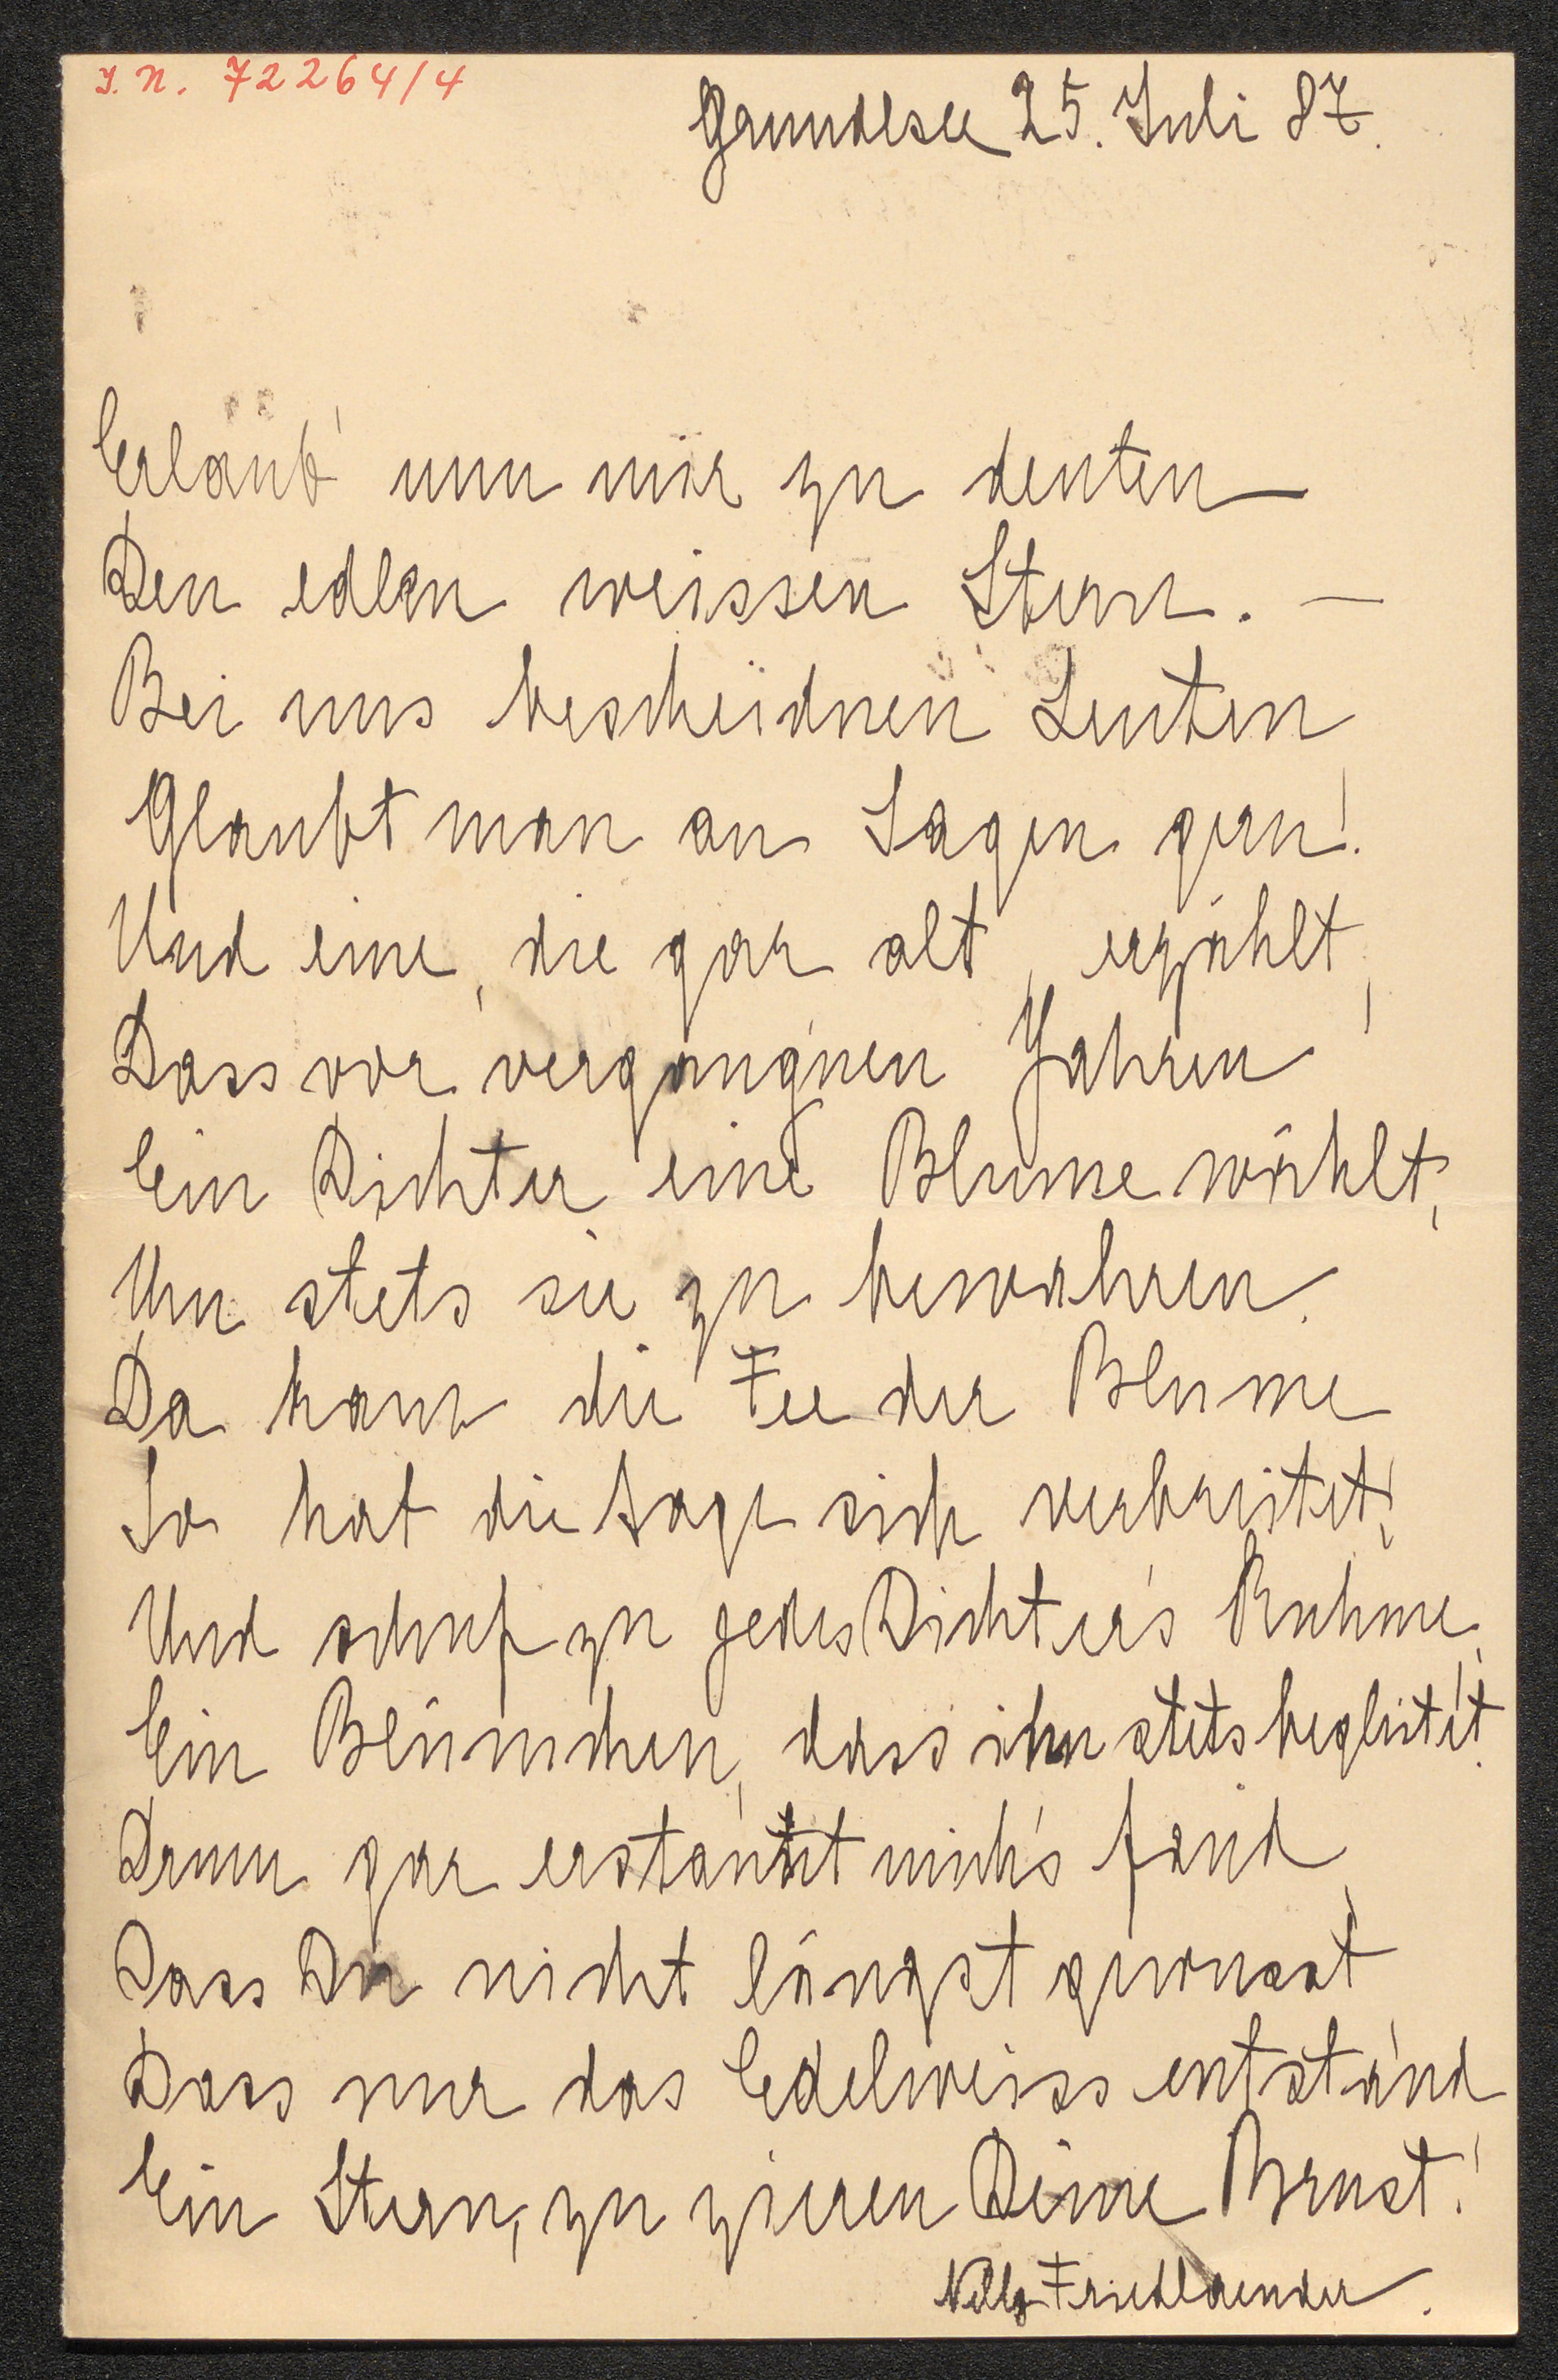 J. N. 72264/4
Grundlsee 25. Juli 87.
Erlaub' nun mir zu deuten
Den edlen weissen Stern. —
Bei uns bescheidnen Leuten
Glaubt man an Sagen gern!
Und eine, die gar alt, erzählt,
Dass vor vergang'nen Jahren
Ein Dichter eine Blume wählt,
Um stets sie zu bewahren.
Da kam die Fee der Blume
So hat die Sage sich verbreitet,
Und schuf zu jedes Dichter's Ruhme,
Ein Blümchen, dass ihn stets begleitet.
Drum gar erstaunt mich's fand,
Dass Du nicht längst gewusst
Dass nur das Edelweiss entstand
Ein Stern, zu zieren Deine Brust!
Nelly Friedlaender.